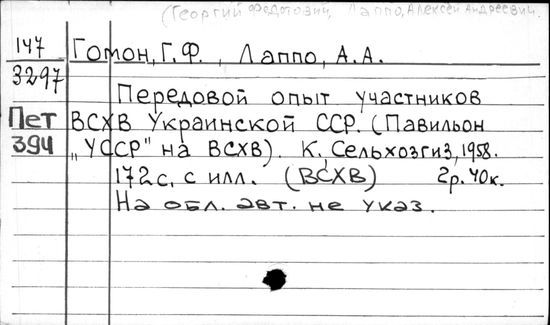 (Георгий Федотович, Лаппо, Алексей Андреевич.
147 Гомон, Г.Ф., Лаппо, А.А.
3297
Передовой опыт участников
Пет ВСХВ Украинской ССР. (Павильон
394 „УССР" на ВСХВ). К., Сельхозгиз, 1958.
172 с. с илл. (ВСХВ) 2р. 40к.
На обл. авт. не указ.